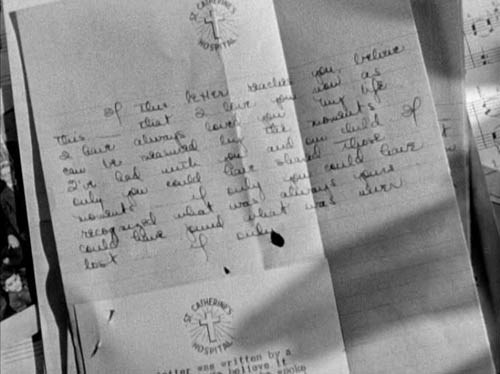 ST. CATHERINE'S
HOSPITAL
If this letter reaches you, believe
this — that I love you now as
I have always loved you. My life
can be measured by the moments
I've had with you and our child. If
only you could have shared those
moments, if only you could have
recognized what was always yours
could have found what was never
lost if only
ST. CATHERINE'S
HOSPITAL
etter was written by a
believe it
spoke